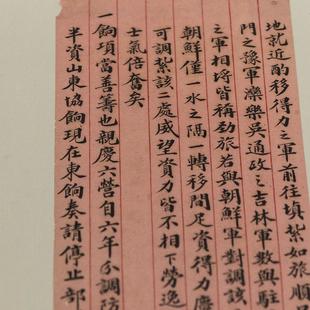 地就近酌移得力之軍前往填紮如旅順
門之豫軍灤樂吳通政之吉林軍數與駐
之軍相埒皆稱勁旅若與朝鮮軍對調該
朝鮮僅一水之隔一轉移間足資得力慶
可調紮該二處威望資力皆不相下勞逸
士氣倍奮矣
一餉項當善籌也親慶六營自六年分調防
半資山東協餉現在東餉奏請停止部